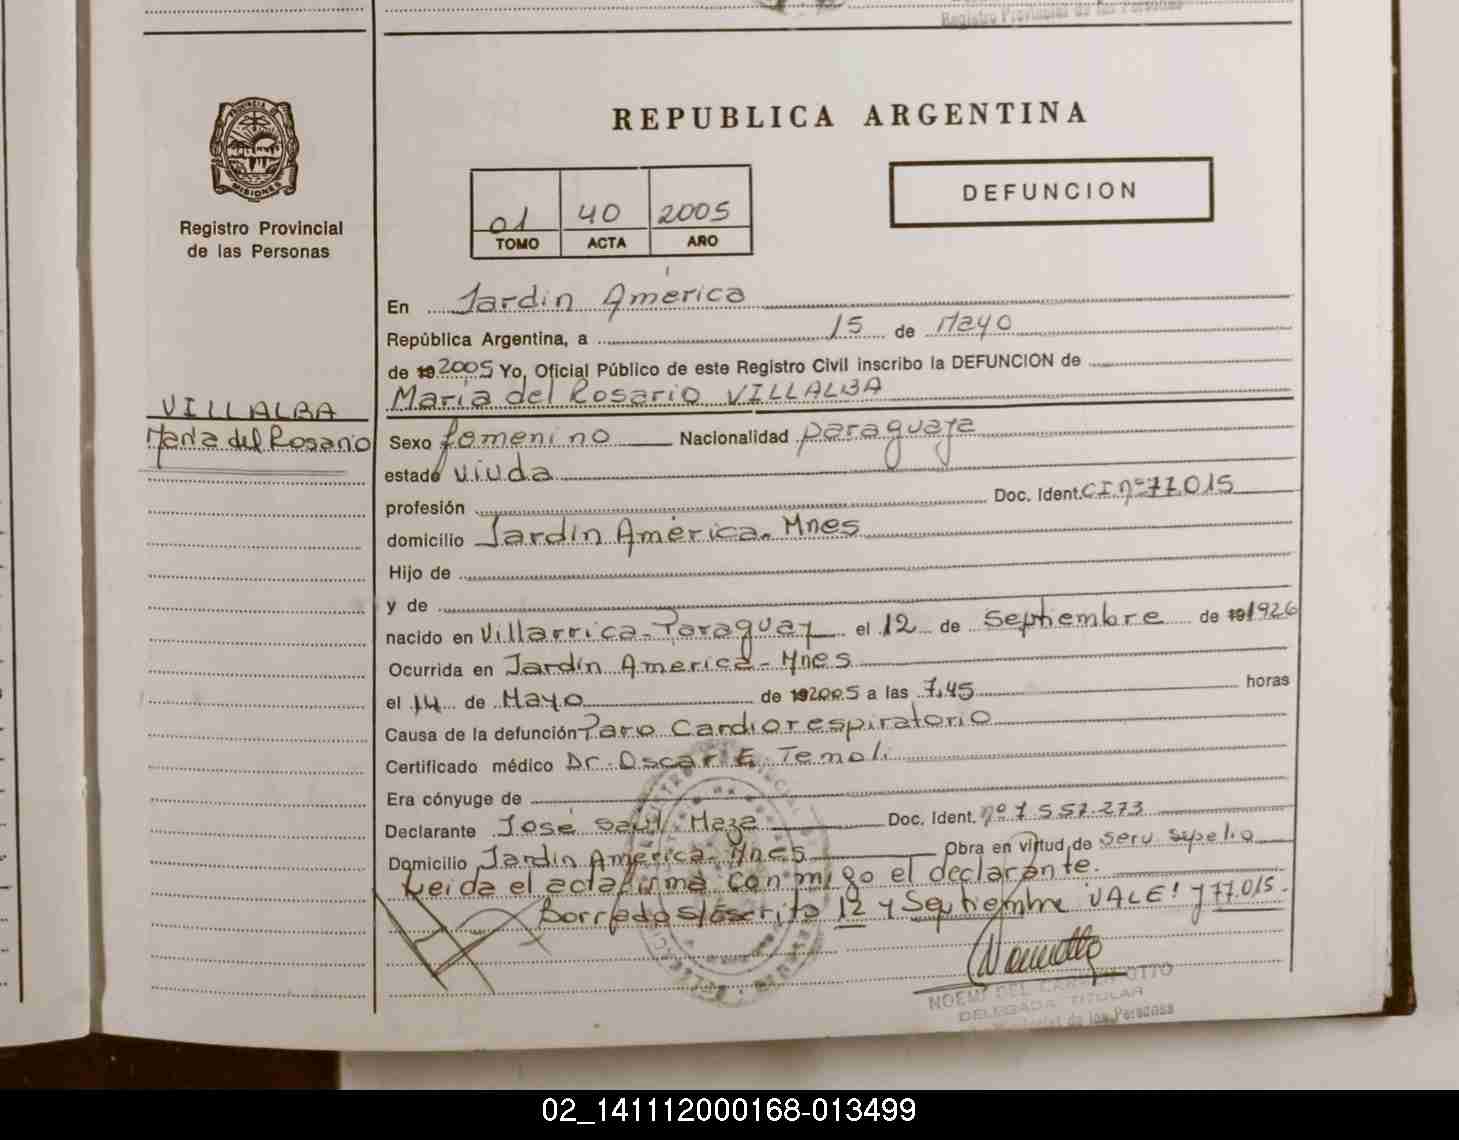 Registro Provincial de las Personas
PROVINCIA DE
MISIONES
Registro Provincial
de las Personas
VILLALBA
María del Rosario
REPUBLICA ARGENTINA
01 40 2005
TOMO ACTA AÑO
DEFUNCION
En Jardín América
República Argentina, a 15 de Mayo
de 19 2005 Yo, Oficial Público de este Registro Civil inscribo la DEFUNCION de
María del Rosario VILLALBA
Sexo femenino Nacionalidad paraguaya
estado viuda
profesión Doc. Ident. CI. nº 77.015
domicilio Jardín América. Mnes
Hijo de
y de
nacido en Villarrica - Paraguay el 12 de Septiembre de 19 1926
Ocurrida en Jardín America - Mnes
el 14 de Mayo de 19 2005 a las 7,45 horas
Causa de la defunción Paro Cardiorespiratorio
Certificado médico Dr. Oscar E. Temoli
Era cónyuge de
Declarante José Saúl Maza Doc. Ident. nº 7.557.273
Domicilio Jardín América - Mnes Obra en virtud de Serv. Sepelio
Leida el acta firma conmigo el declarante.
Borrado s/escrito 12 y Septiembre VALE! y 77.015.
NOEMI DEL CARMEN OTTO
DELEGADA TITULAR
de las Personas
02_141112000168-013499